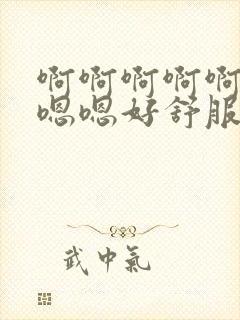 啊啊啊啊啊
嗯嗯好舒服
武中氣